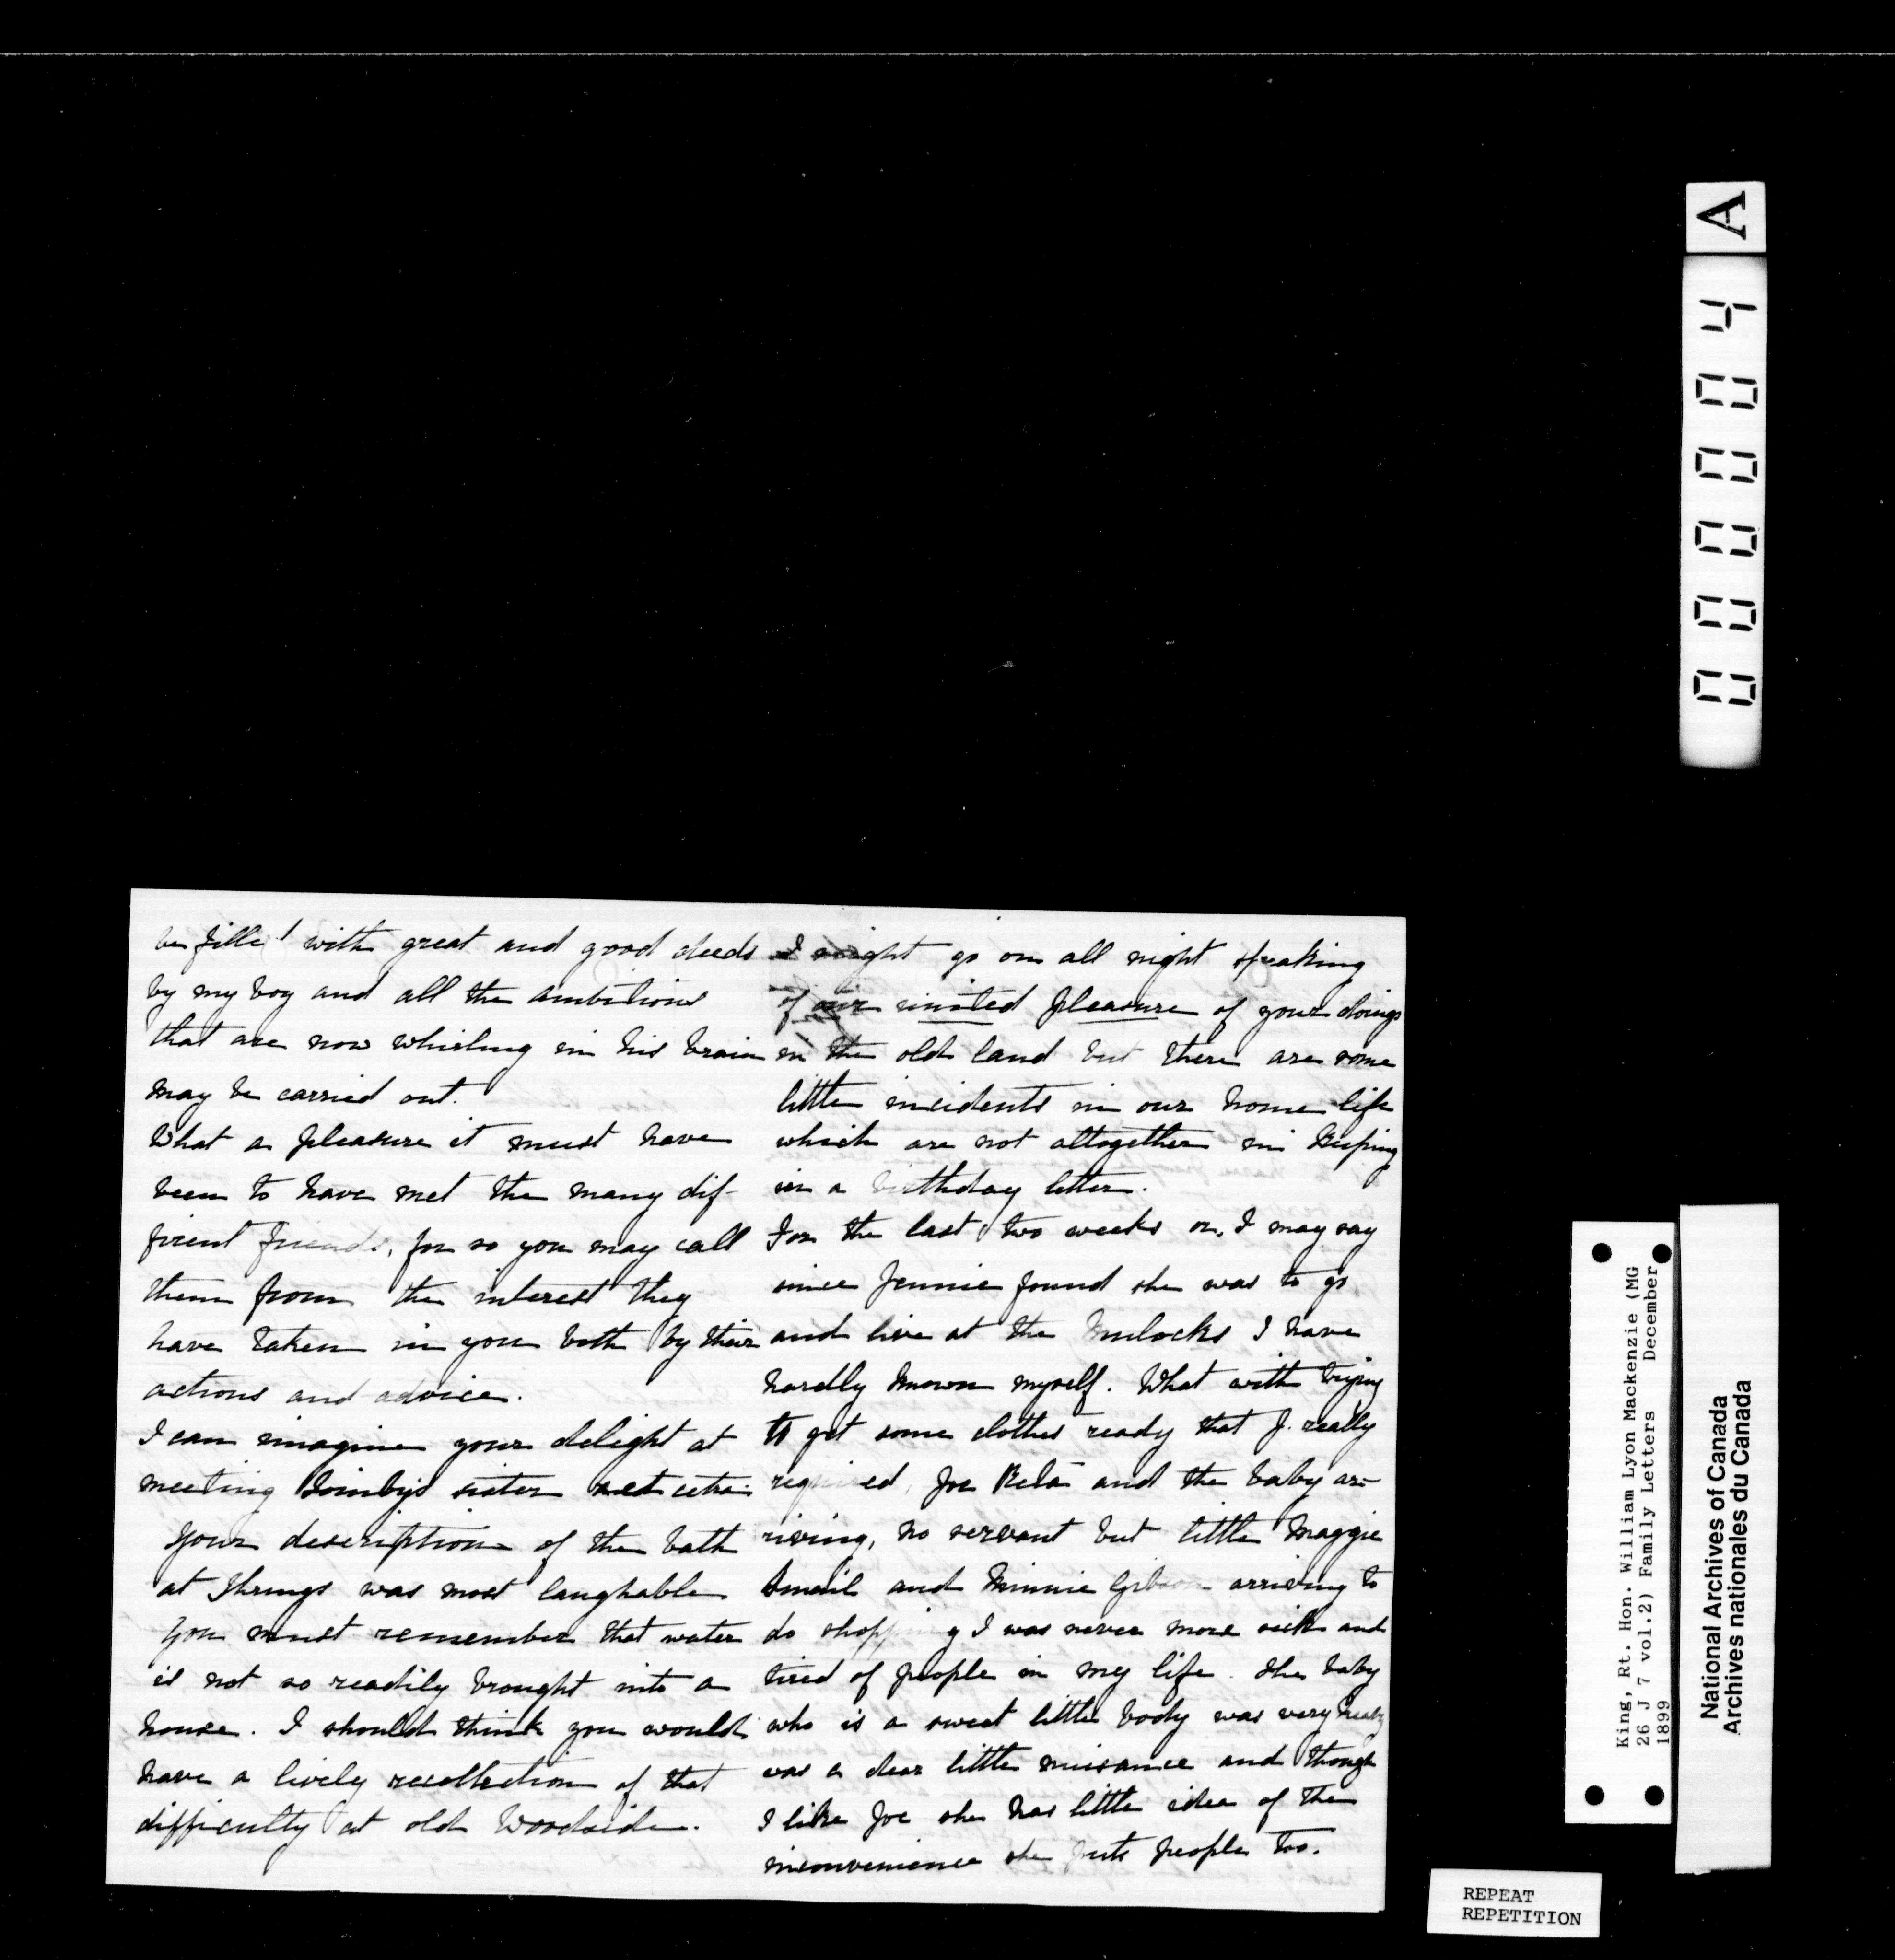 be filled with great and good deeds
by my boy and all the ambitions
that are now whirling in his brain
may be carried out.
What a pleasure it must have
been to have met the many dif-
ferent friends, for so you may call
them from the interest they
have taken in you both by their
actions and advice.
I can imagine your delight at
meeting sister et cetra.
Your description of the bath
at was most laughable
You must remember that water
is not so readily brought into a
house. I should think you would
have a lively recollection of that
difficulty at old Woodside.
I might go on all night speaking
of our united pleasure of your doings
in the old land but there are some
little incidents in our home life
which are not altogether in keeping
in a birthday letter.
For the last two weeks or, I may say
since Jennie found she was to go
and live at the Mulocks I have
hardly known myself. What with trying
to get some clothes ready that J. really
required, Joe and the baby ar-
riving, no servant but little Maggie
and Minnie Gibson arriving to
do shopping I was never more sick and
tired of people in my life. The baby
who is a sweet little body was very
was a dear little nuisance and though
I like Joe she has little idea of the
inconvenience she puts people too.
A
400000
King, Rt. Hon. William Lyon Mackenzie (MG
26 J 7 vol.2) Family Letters December
1899
National Archives of Canada
Archives nationales du Canada
REPEAT
REPETITION